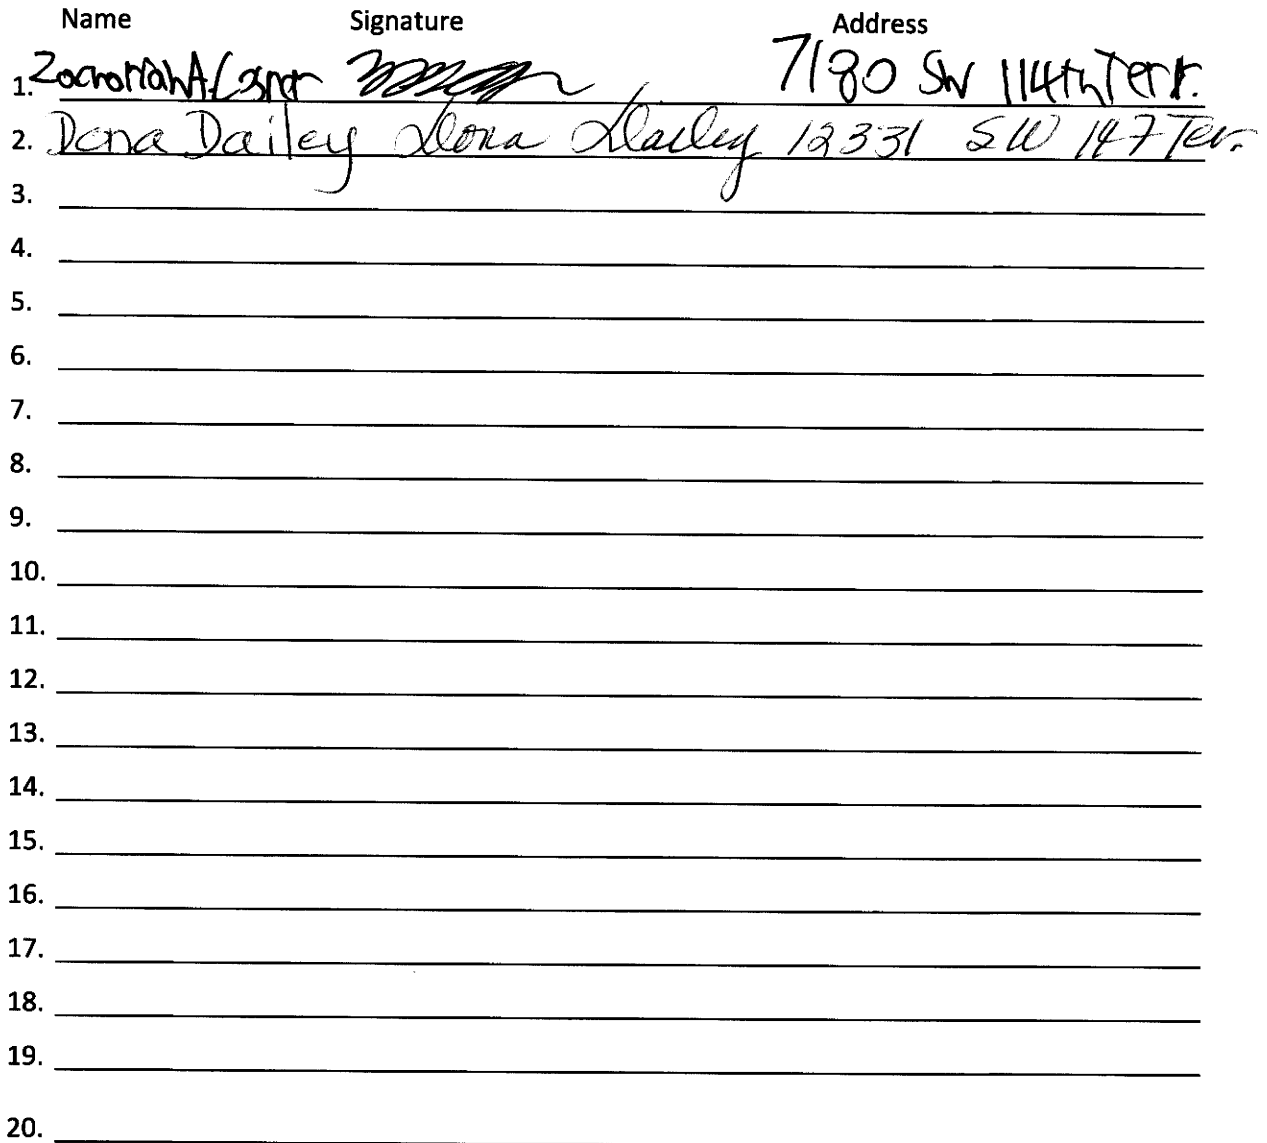 Name Signature Address
1. Zachariah A. 7180 SW 114th Terr.
2. Dona Dailey Dona Dailey 12331 SW 147 Ter.
3.
4.
5.
6.
7.
8.
9.
10.
11.
12.
13.
14.
15.
16.
17.
18.
19.
20.